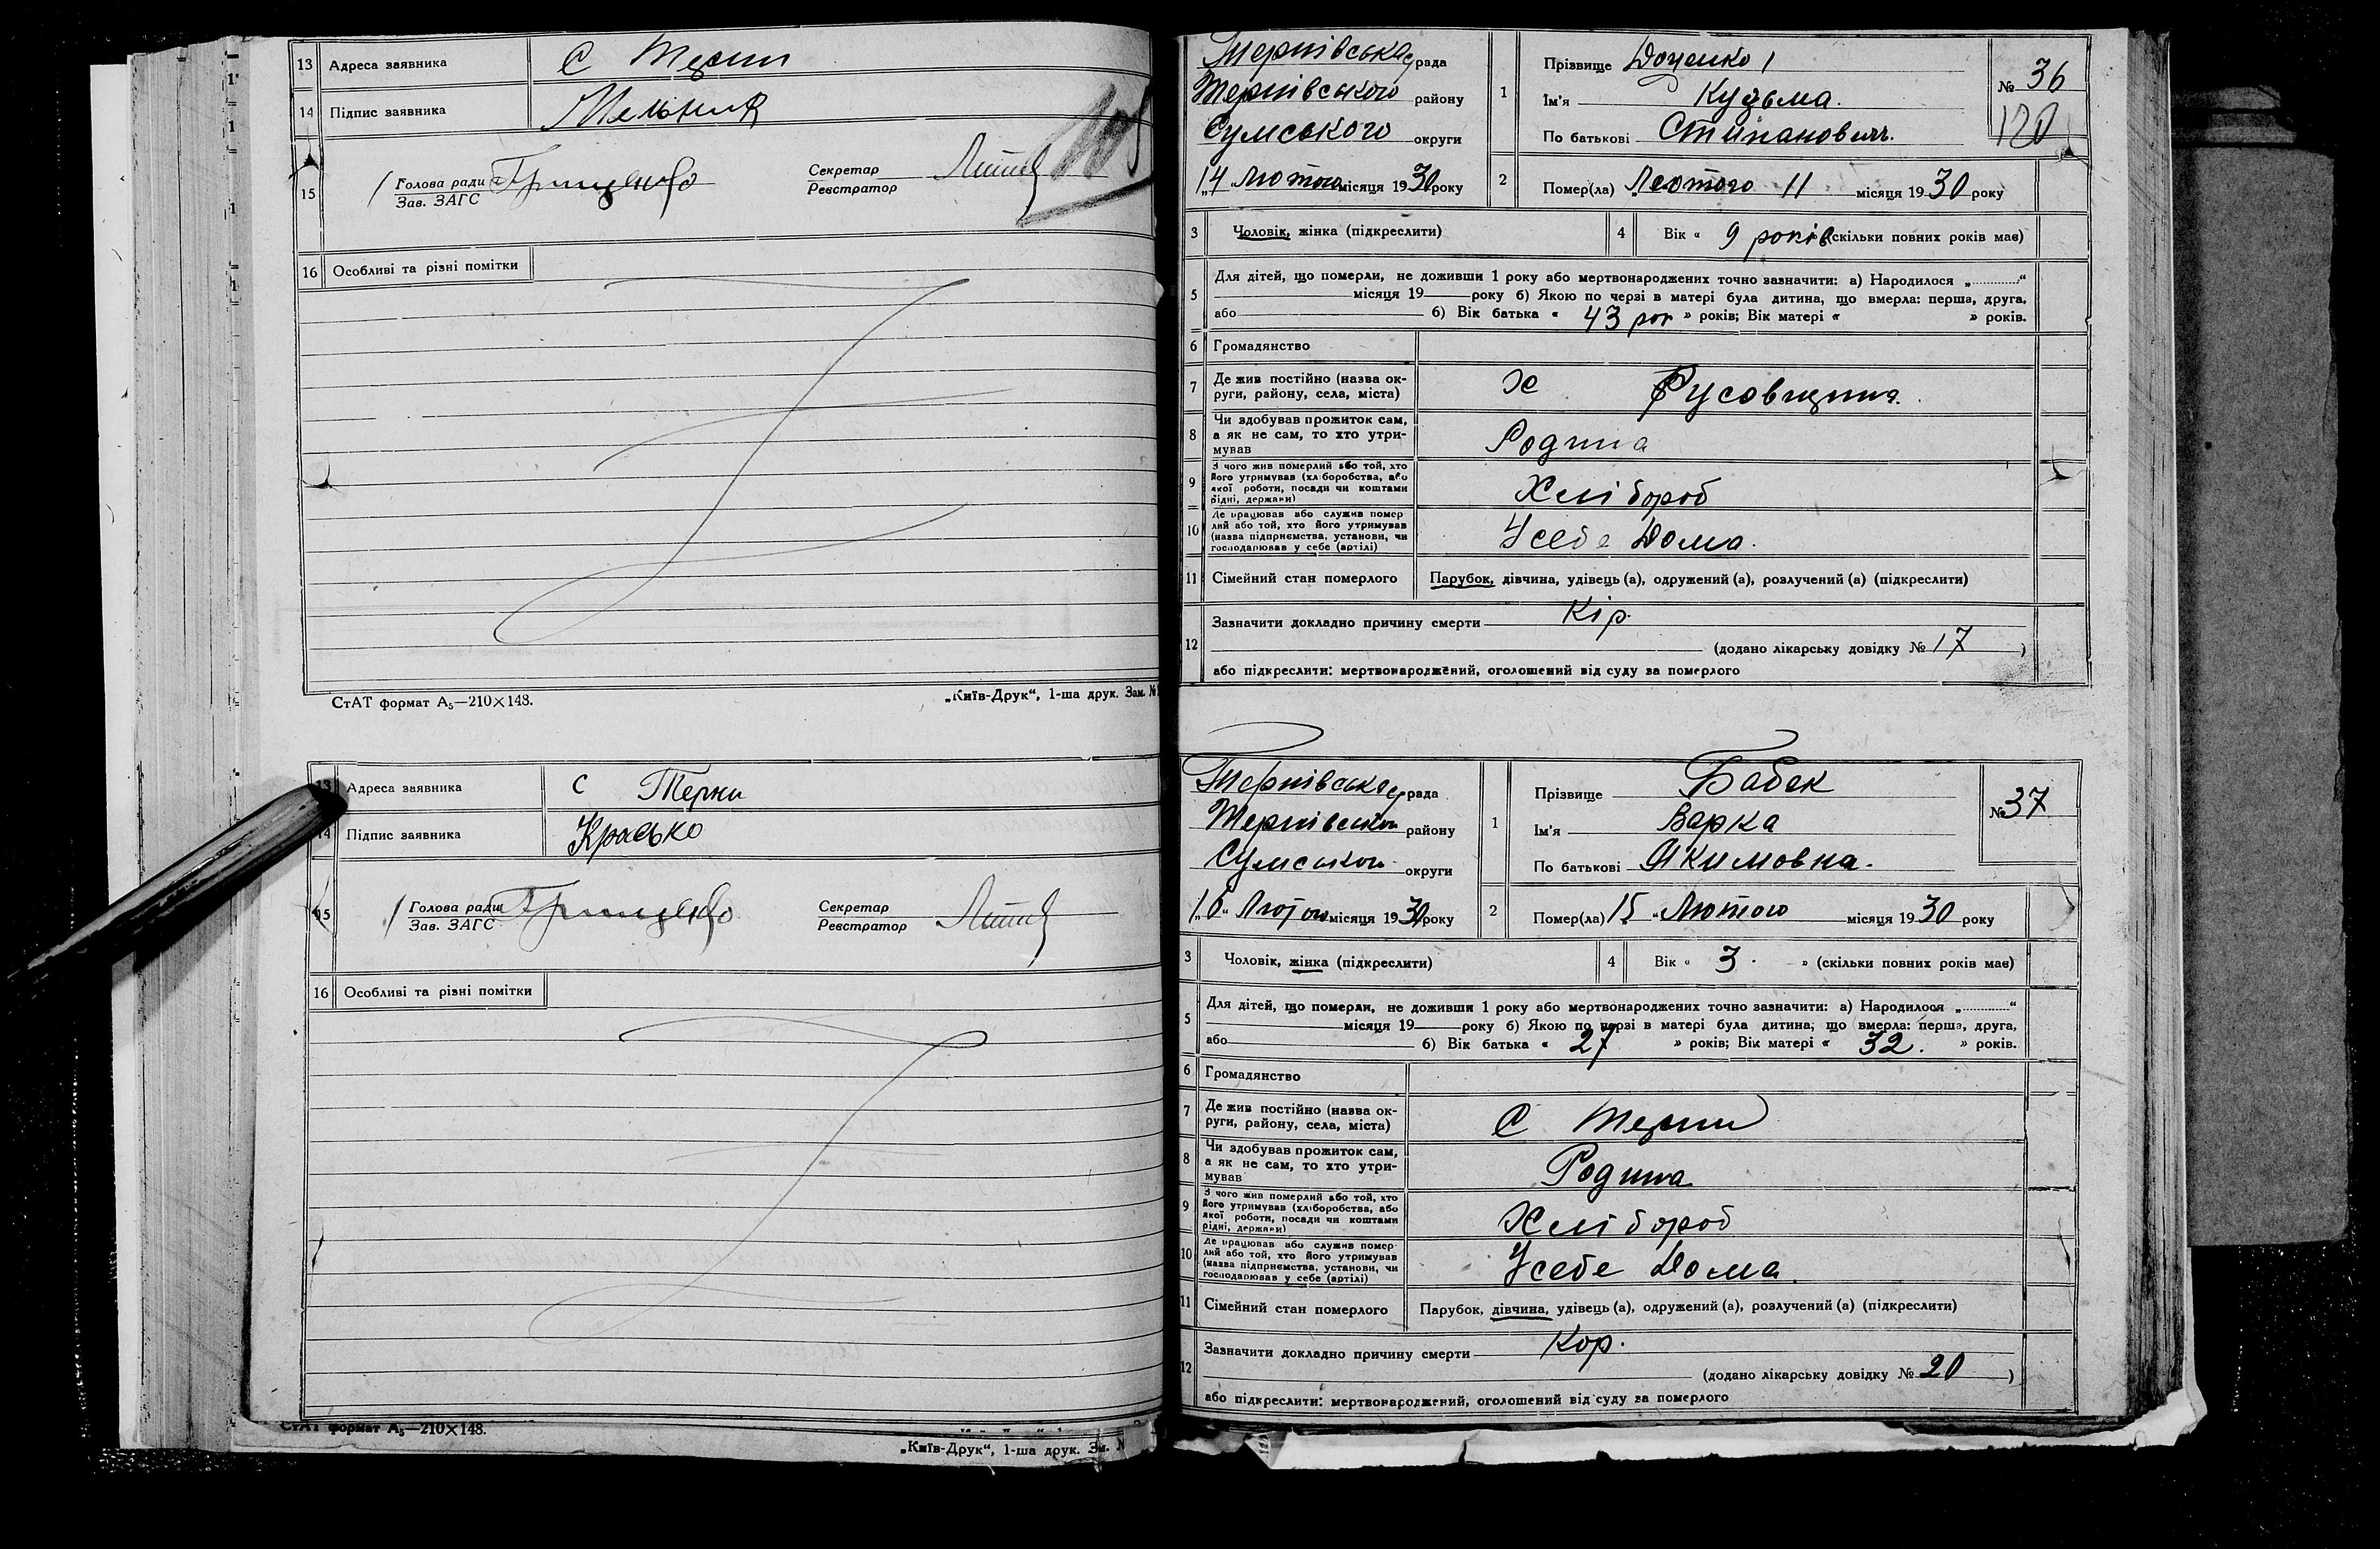 13 Адреса заявника С Терни
14 Підпис заявника Мельник
15 Голова ради Грищенко Секретар
Зав. ЗАГС Реєстратор
16 Особливі та різні помітки
СтАТ формат А₅—210×148.
„Київ-Друк“, 1-ша друк. Зам. №
13 Адреса заявника с Терни
14 Підпис заявника Красько
15 Голова ради Грищенко Секретар
Зав. ЗАГС Реєстратор
16 Особливі та різні помітки
СтАТ формат А₅—210×148.
„Київ-Друк“, 1-ша друк. Зам. №
Тернівська рада
Тернівського району
Сумського округи
„14 Лютого місяця 1930 року
1 Прізвище Доценко
Ім'я Кузьма.
По батькові Стипанович.
№ 36
120
2 Помер(ла) Лютого 11 місяця 1930 року
3 Чоловік, жінка (підкреслити)
4 Вік « 9 років (скільки повних років має)
5 Для дітей, що померли, не доживши 1 року або мертвонароджених точно зазначити: а) Народилося „............“
місяця 19 року б) Якою по черзі в матері була дитина, що вмерла: перша, друга,
або б) Вік батька « 43 рок » років; Вік матері « » років.
6 Громадянство
7 Де жив постійно (назва ок- х Русовщина.
руги, району, села, міста)
8 Чи здобував прожиток сам, Родина
а як не сам, то хто утри-
мував
9 З чого жив померлий або той, хто Хлібороб
його утримував (хліборобства, або
якої роботи, посади чи коштами
рідні, держави)
10 Де працював або служив помер Усебе Дома.
лий або той, хто його утримував
(назва підприємства, установи, чи
господарював у себе (артілі)
11 Сімейний стан померлого Парубок, дівчина, удівець (а), одружений (а), розлучений (а) (підкреслити)
12 Зазначити докладно причину смерти Кір.
(додано лікарську довідку № 17 )
або підкреслити: мертвонароджений, оголошений від суду за померлого
Тернівська рада
Тернівськог району
Сумськог округи
„16“ Лютого місяця 1930 року
1 Прізвище Бабак
Ім'я Варка
По батькові Якимовна.
№ 37
2 Помер(ла) 15 „Лютого місяця 1930 року
3 Чоловік, жінка (підкреслити)
4 Вік « 3 » (скільки повних років має)
5 Для дітей, що померли, не доживши 1 року або мертвонароджених точно зазначити: а) Народилося „............“
місяця 19 року б) Якою по черзі в матері була дитина, що вмерла: перша, друга,
або б) Вік батька « 27 » років; Вік матері « 32. » років.
6 Громадянство
7 Де жив постійно (назва ок- С Терни
руги, району, села, міста)
8 Чи здобував прожиток сам, Родина
а як не сам, то хто утри-
мував
9 З чого жив померлий або той, хто Хлібороб
його утримував (хліборобства, або
якої роботи, посади чи коштами
рідні, держави)
10 Де працював або служив помер Усебе Дома.
лий або той, хто його утримував
(назва підприємства, установи, чи
господарював у себе (артілі)
11 Сімейний стан померлого Парубок, дівчина, удівець (а), одружений (а), розлучений (а) (підкреслити)
12 Зазначити докладно причину смерти Кор.
(додано лікарську довідку № 20 )
або підкреслити: мертвонароджений, оголошений від суду за померлого